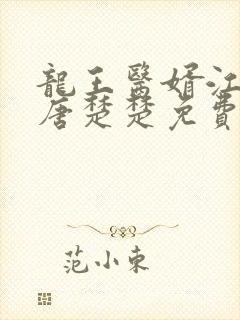 龍王醫婿江
唐楚楚免費
范小東